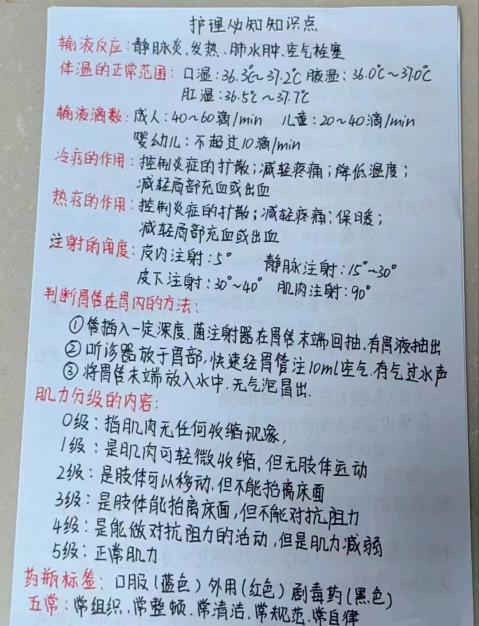 护理必知知识点
输液反应:静脉炎、发热、肺水肿、空气栓塞
体温的正常范围:口温:36.3℃~37.2℃ 腋温:36.0℃~37.0℃
肛温:36.5℃~37.7℃
输液滴数:成人:40~60滴/min 儿童:20~40滴/min
婴幼儿:不超过10滴/min
冷疗的作用:控制炎症的扩散;减轻疼痛;降低温度;
减轻局部充血或出血
热疗的作用:控制炎症的扩散;减轻疼痛;保暖;
减轻局部充血或出血
注射的角度:皮内注射:5° 静脉注射:15°~30°
皮下注射:30°~40° 肌肉注射:90°
判断胃管在胃内的方法:
①管插入一定深度,菌注射器在胃管末端回抽,有胃液抽出
②听诊器放于胃部,快速经胃管注10ml空气,有气过水声
③将胃管末端放入水中,无气泡冒出.
肌力分级的内容:
0级:指肌肉无任何收缩现象,
1级:是肌肉可轻微收缩,但无肢体运动
2级:是肢体可以移动,但不能抬离床面
3级:是肢体能抬离床面,但不能对抗阻力
4级:是能做对抗阻力的活动,但是肌力减弱
5级:正常肌力
药瓶标签:口服(蓝色)外用(红色)剧毒药(黑色)
五常:常组织,常整顿,常清洁,常规范,常自律